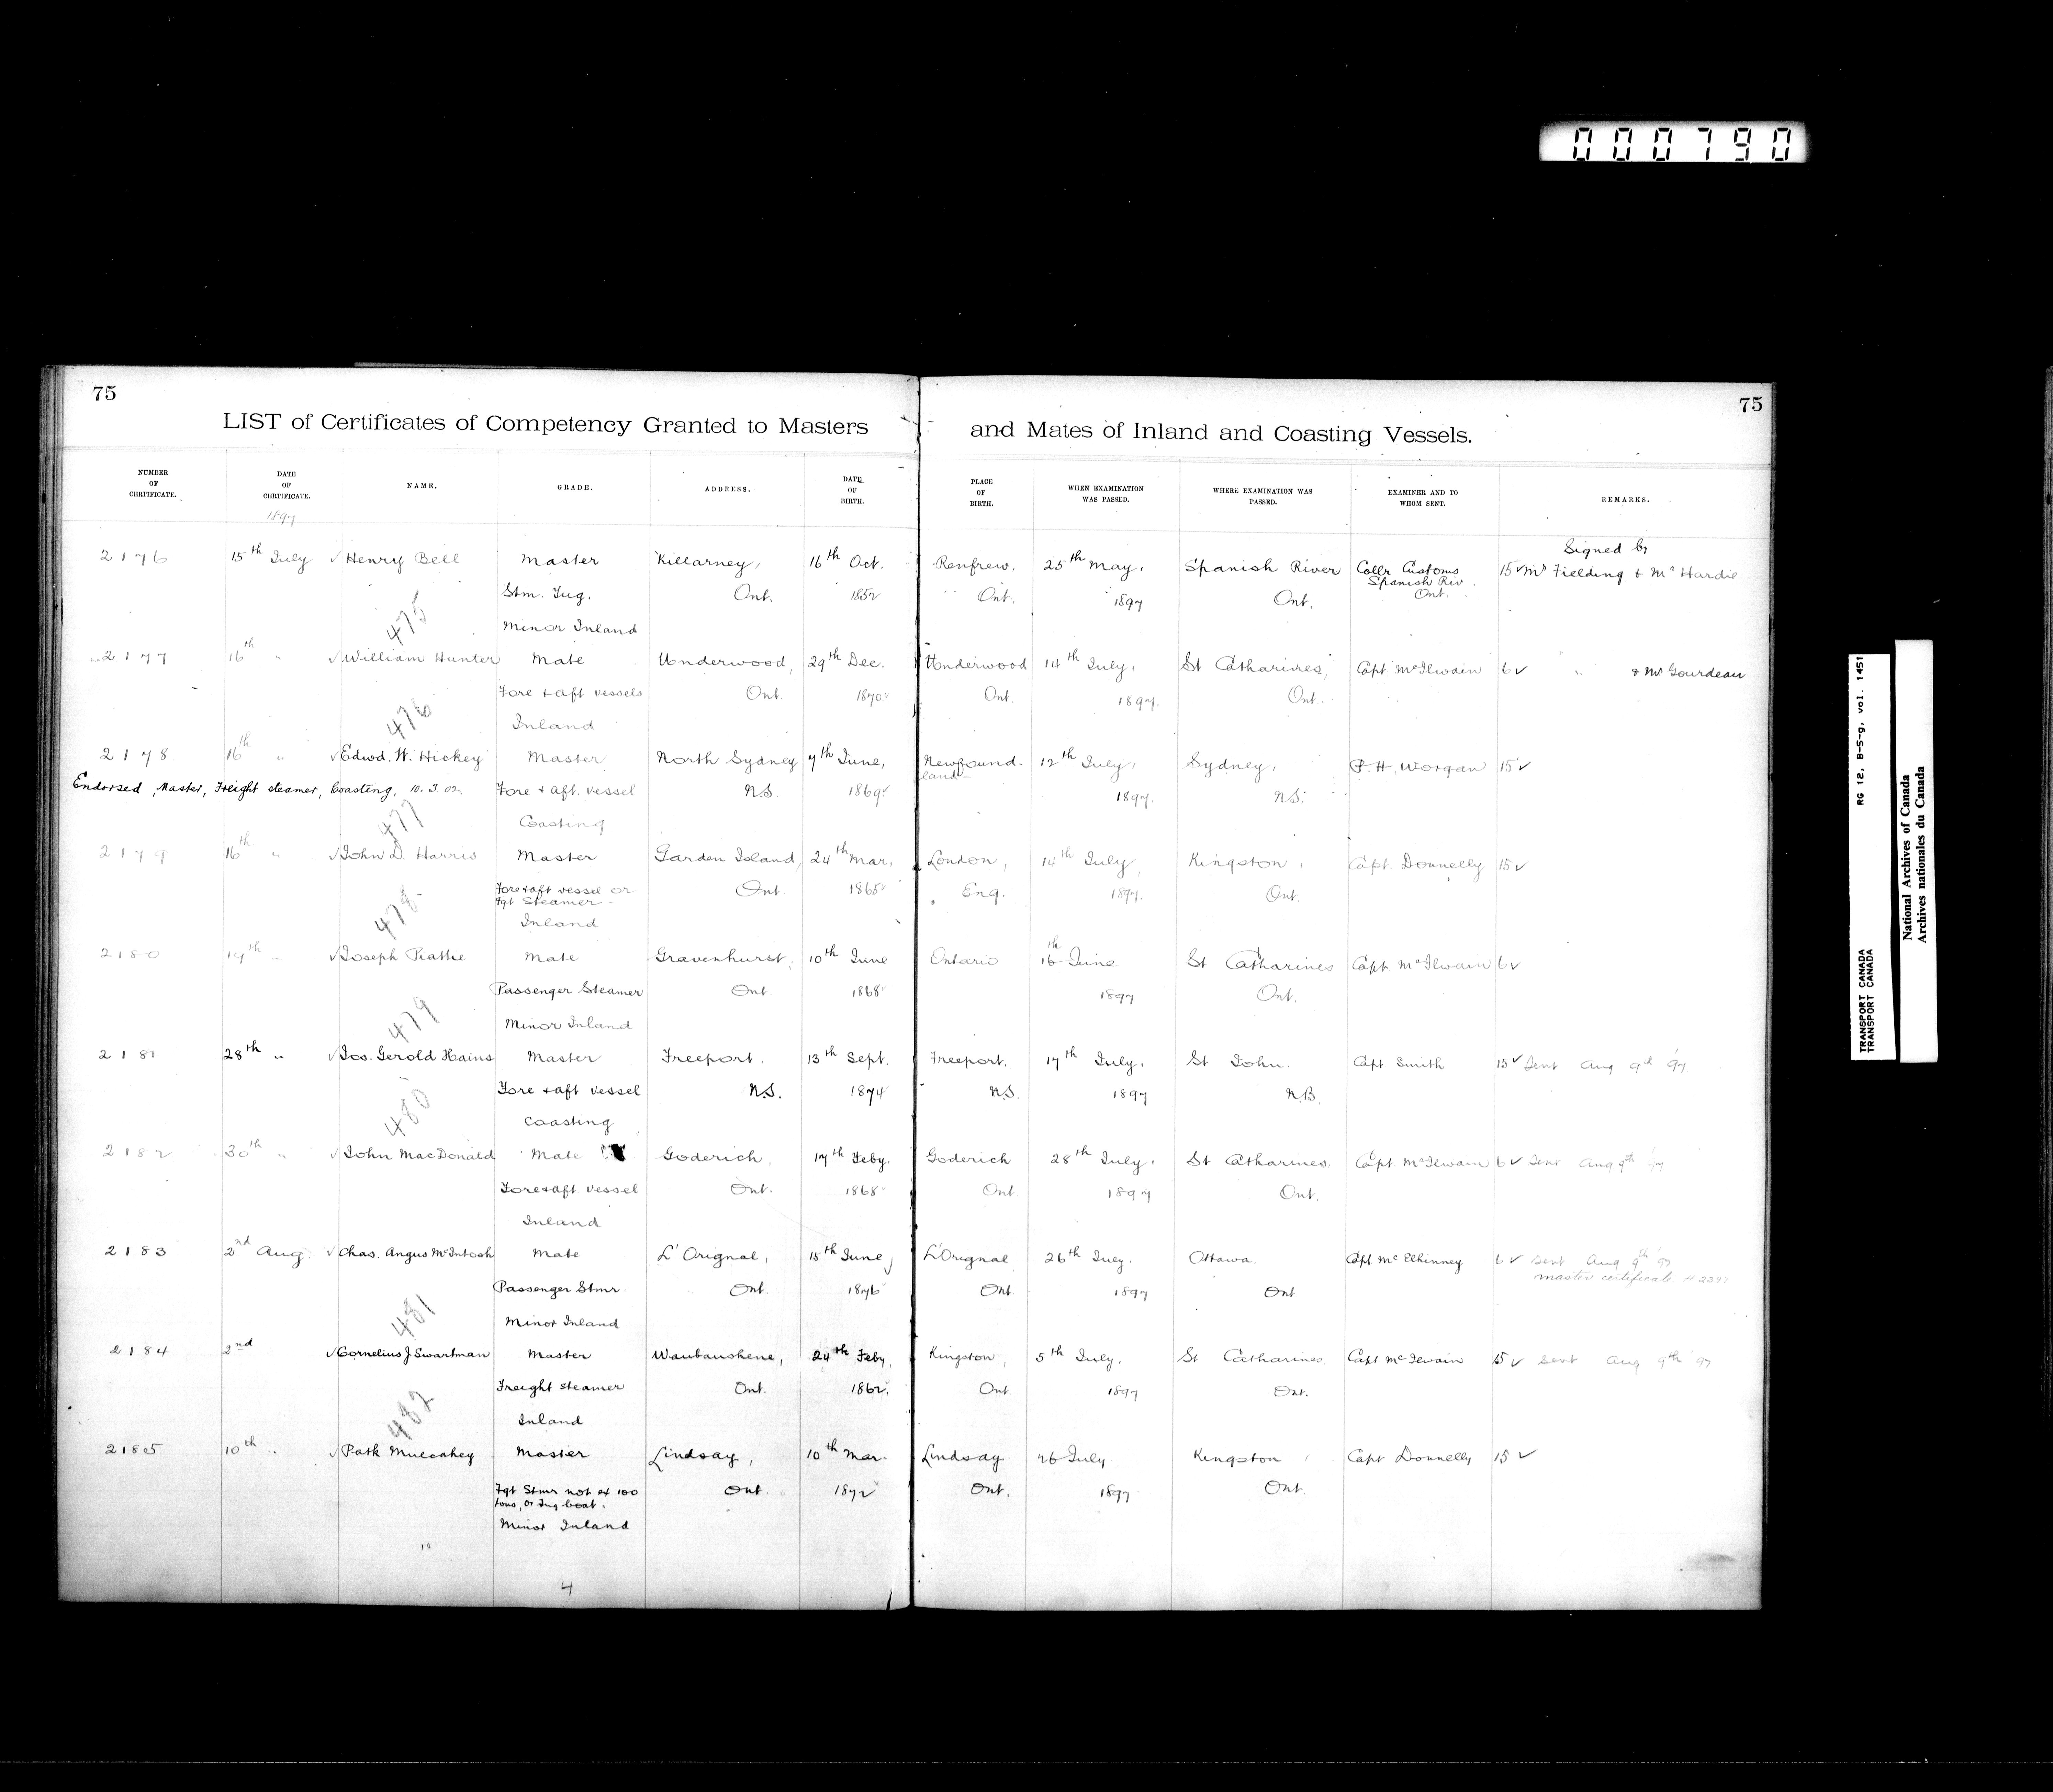 000790
75
75
LIST of Certificates of Competency Granted to Masters and Mates of Inland and Coasting Vessels.
NUMBER OF CERTIFICATE. DATE OF CERTIFICATE. NAME. GRADE. ADDRESS. DATE OF BIRTH. PLACE OF BIRTH. WHEN EXAMINATION WAS PASSED. WHERE EXAMINATION WAS PASSED. EXAMINER AND TO WHOM SENT. REMARKS.
1897
Signed by
2176 15th July √ Henry Bell Master Killarney, 16th Oct. Renfrew, 25th May, Spanish River Collr Customs 15 √ Mr Fielding & Mr Hardie
Stm. Tug. Ont. 1852 Ont. 1897 Ont. Spanish Riv. Ont.
475 Minor Inland
2177 16th " √ William Hunter Mate Underwood, 29th Dec. Underwood 14th July, St Catharines, Capt McIlwain 6 √ " & Mr Gourdeau
Fore & aft vessels Ont. 1870 Ont. 1897. Ont.
476 Inland
2178 16th " √ Edwd. W. Hickey Master North Sydney 7th June, Newfound- 12th July, Sydney, P. H. Worgan 15 √
Endorsed, Master, Freight steamer, Coasting, 10.3.02. Fore & aft vessel N.S. 1869 land 1897. N.S.
477 Coasting
2179 16th " √ John D. Harris Master Garden Island, 24th Mar. London, 14th July, Kingston, Capt. Donnelly 15 √
Fore & aft vessel or Ont. 1865 Eng. 1897. Ont.
Fgt Steamer
478 Inland
2180 19th " √ Joseph Mate Gravenhurst, 10th June Ontario 16th June St Catharines Capt McIlwain 6 √
Passenger Steamer Ont. 1868 1897 Ont.
479 Minor Inland
2181 28th " √ Jos. Gerold Hains Master Freeport, 13th Sept. Freeport, 17th July, St John. Capt Smith 15 √ Sent Aug 9th 97
Fore & aft vessel N.S. 1874 N.S. 1897 N.B.
480 Coasting
2182 30th " √ John MacDonald Mate Goderich, 17th Feby. Goderich 28th July, St Catharines. Capt McIlwain 6 √ Sent Aug 9th 97
Fore & aft vessel Ont. 1868 Ont 1897 Ont.
Inland
2183 2nd Aug. √ Chas. Angus McIntosh Mate L'Orignal, 15th June, L'Orignal 26th July. Ottawa. Capt McElhinney 6 √ Sent Aug 9th 97
master certificate
Passenger Stmr. Ont. 1876 Ont 1897 Ont
481 Minor Inland
2184 2nd √ Cornelius J Swartman Master Waubaushene, 24th Feby, Kingston, 5th July, St Catharines. Capt McIlwain 15 √ Sent Aug 9th 97
Freight steamer Ont. 1862. Ont. 1897 Ont.
482 Inland
2185 10th " √ Patk Mulcahey Master Lindsay, 10th Mar. Lindsay 26 July Kingston Capt Donnelly 15 √
Fgt Stmr not ex 100 Ont. 1872 Ont. 1897 Ont.
tons, or Tug boat.
Minor Inland
4
TRANSPORT CANADA RG 12, B-5-g, vol. 1451
TRANSPORT CANADA
National Archives of Canada
Archives nationales du Canada